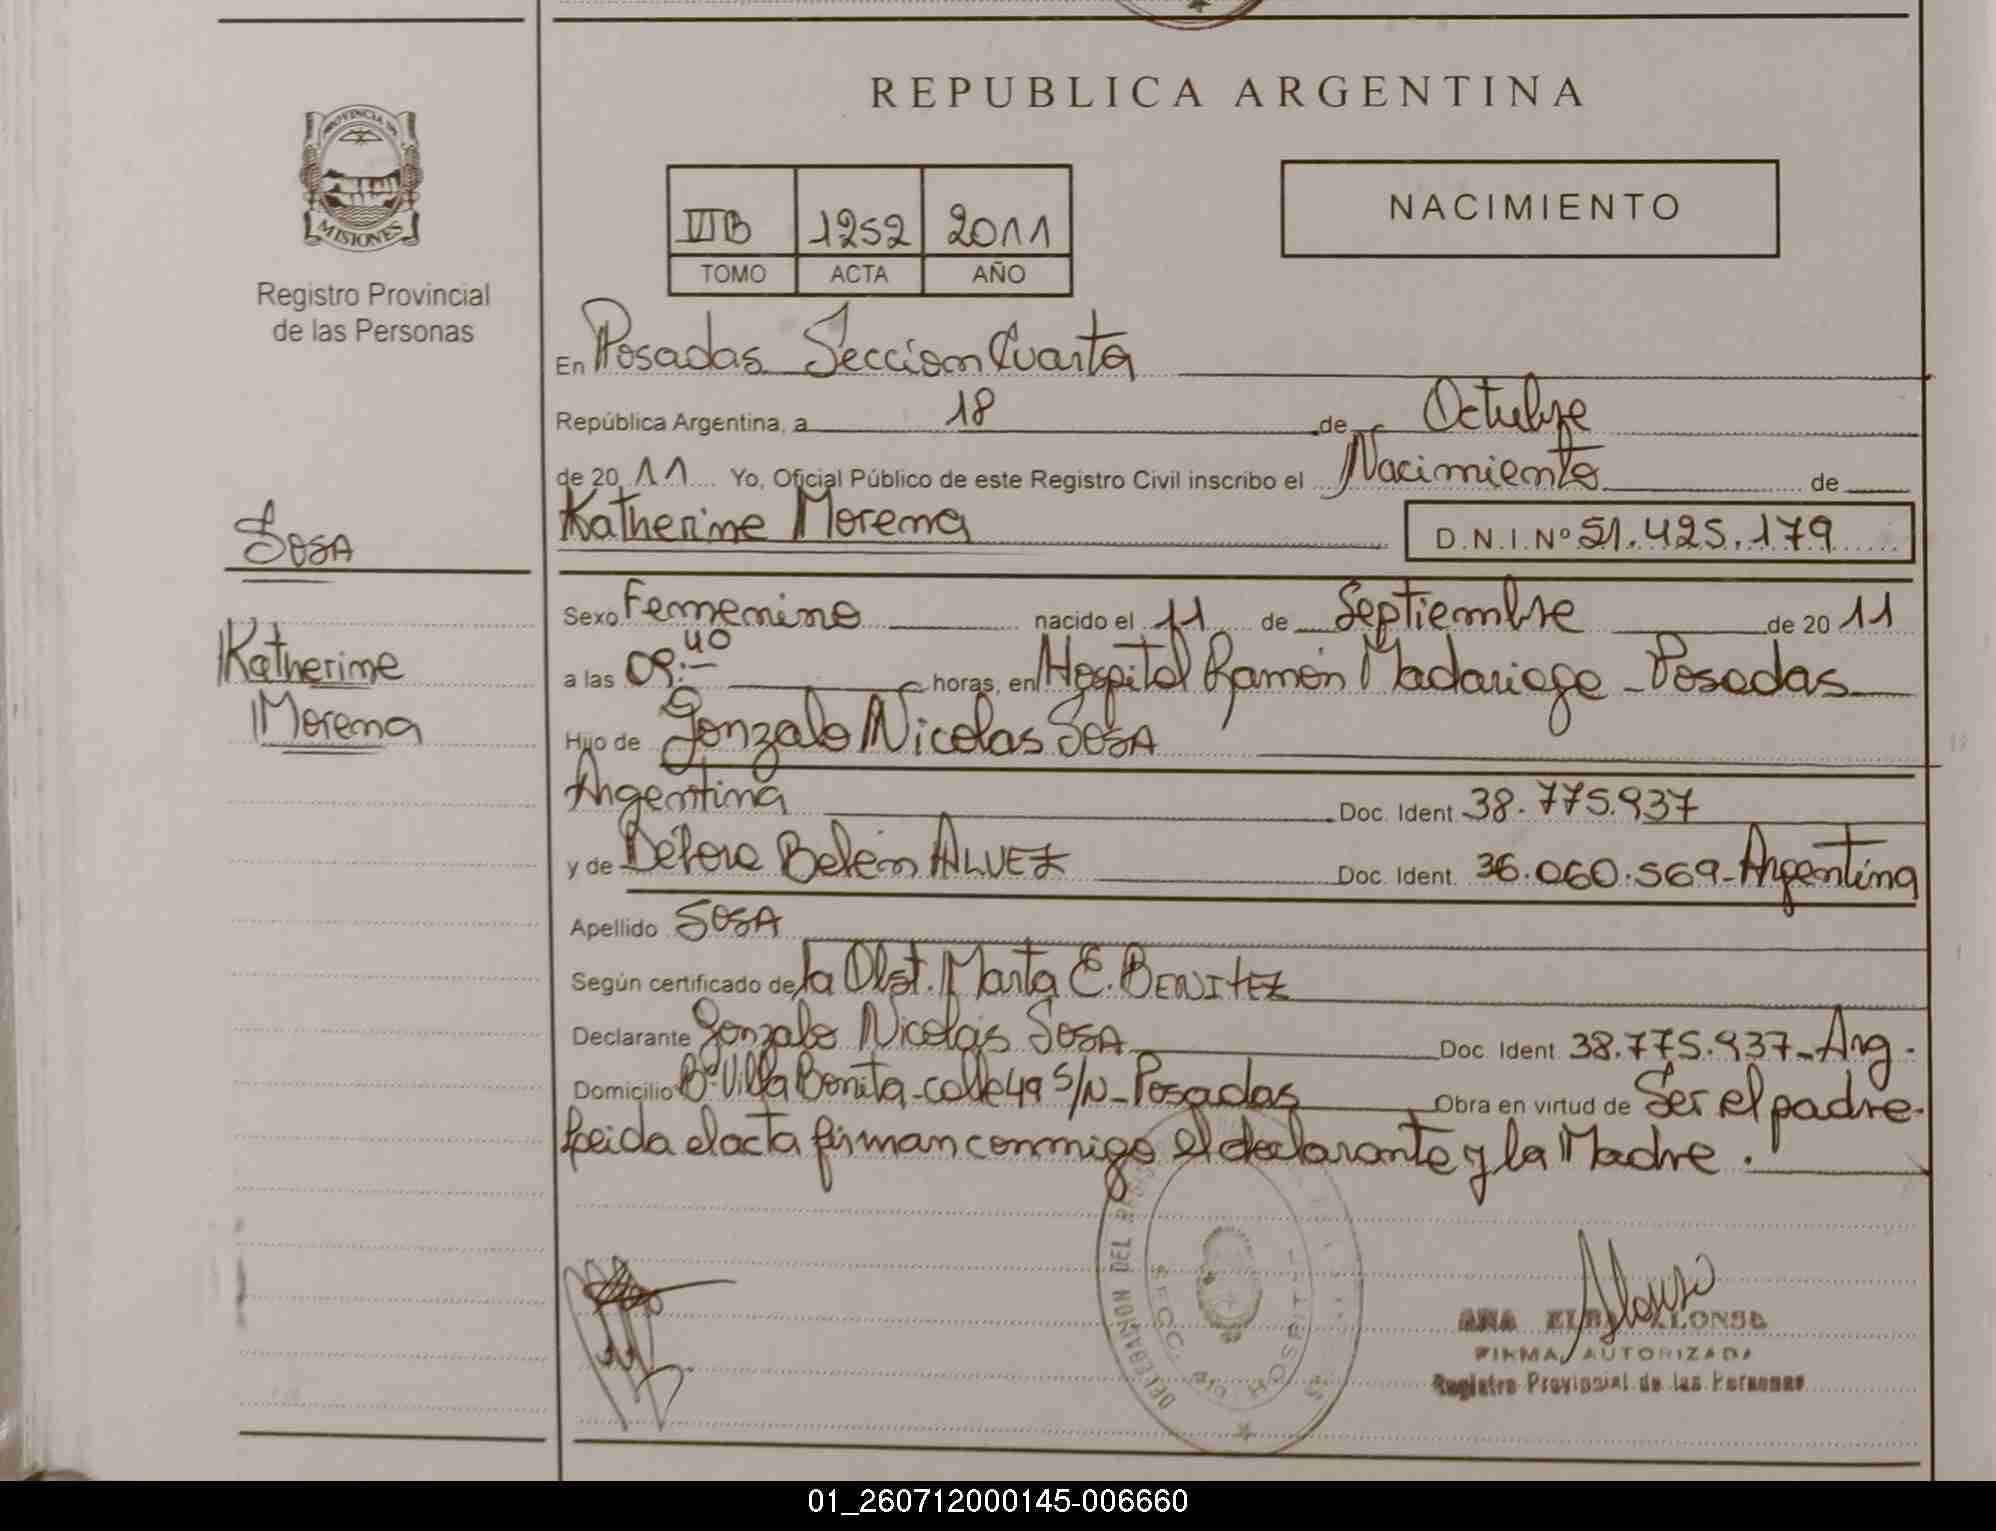 REPUBLICA ARGENTINA
PROVINCIA DE
MISIONES
Registro Provincial
de las Personas
1252 2011
TOMO ACTA AÑO
NACIMIENTO
En Posadas Seccion Cuarta
República Argentina, a 18 de Octubre
de 20 11 Yo, Oficial Público de este Registro Civil inscribo el Nacimiento de
Katherine Morena D.N.I.Nº 51.425.179
SOSA
Katherine
Morena
Sexo Femenino nacido el 11 de Septiembre de 20 11
a las 09:40 horas, en Hospital Ramón Madariaga - Posadas
Hijo de Gonzalo Nicolas SOSA
Argentina Doc. Ident. 38.775.937
y de Belén ALVEZ Doc. Ident. 36.060.569 - Argentina
Apellido SOSA
Según certificado de la Obst. Marta E. BENITEZ
Declarante Gonzalo Nicolas SOSA Doc. Ident. 38.775.937 - Arg.
Domicilio Bº Villa Bonita - calle 49 S/N - Posadas Obra en virtud de Ser el padre.
Leida el acta firman conmigo el declarante y la Madre.
DELEGACION DEL
SECC. 4ta HOSPITAL
ANA ELBA ALONSO
FIRMA AUTORIZADA
Registro Provincial de las Personas
01_260712000145-006660